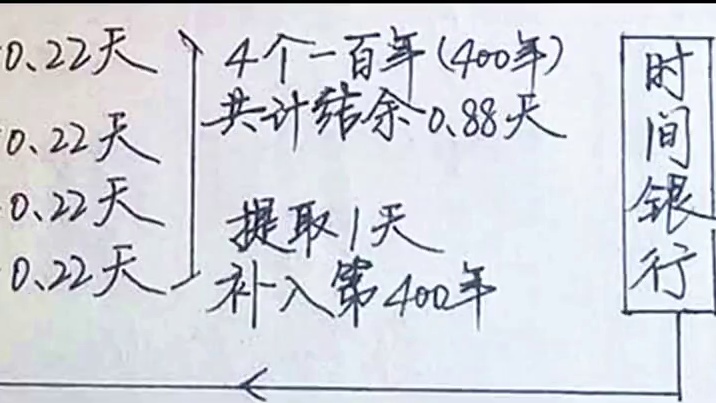 0.22天
0.22天
0.22天
0.22天
4个一百年(400年)
共计结余0.88天
提取1天
补入第400年
时间银行